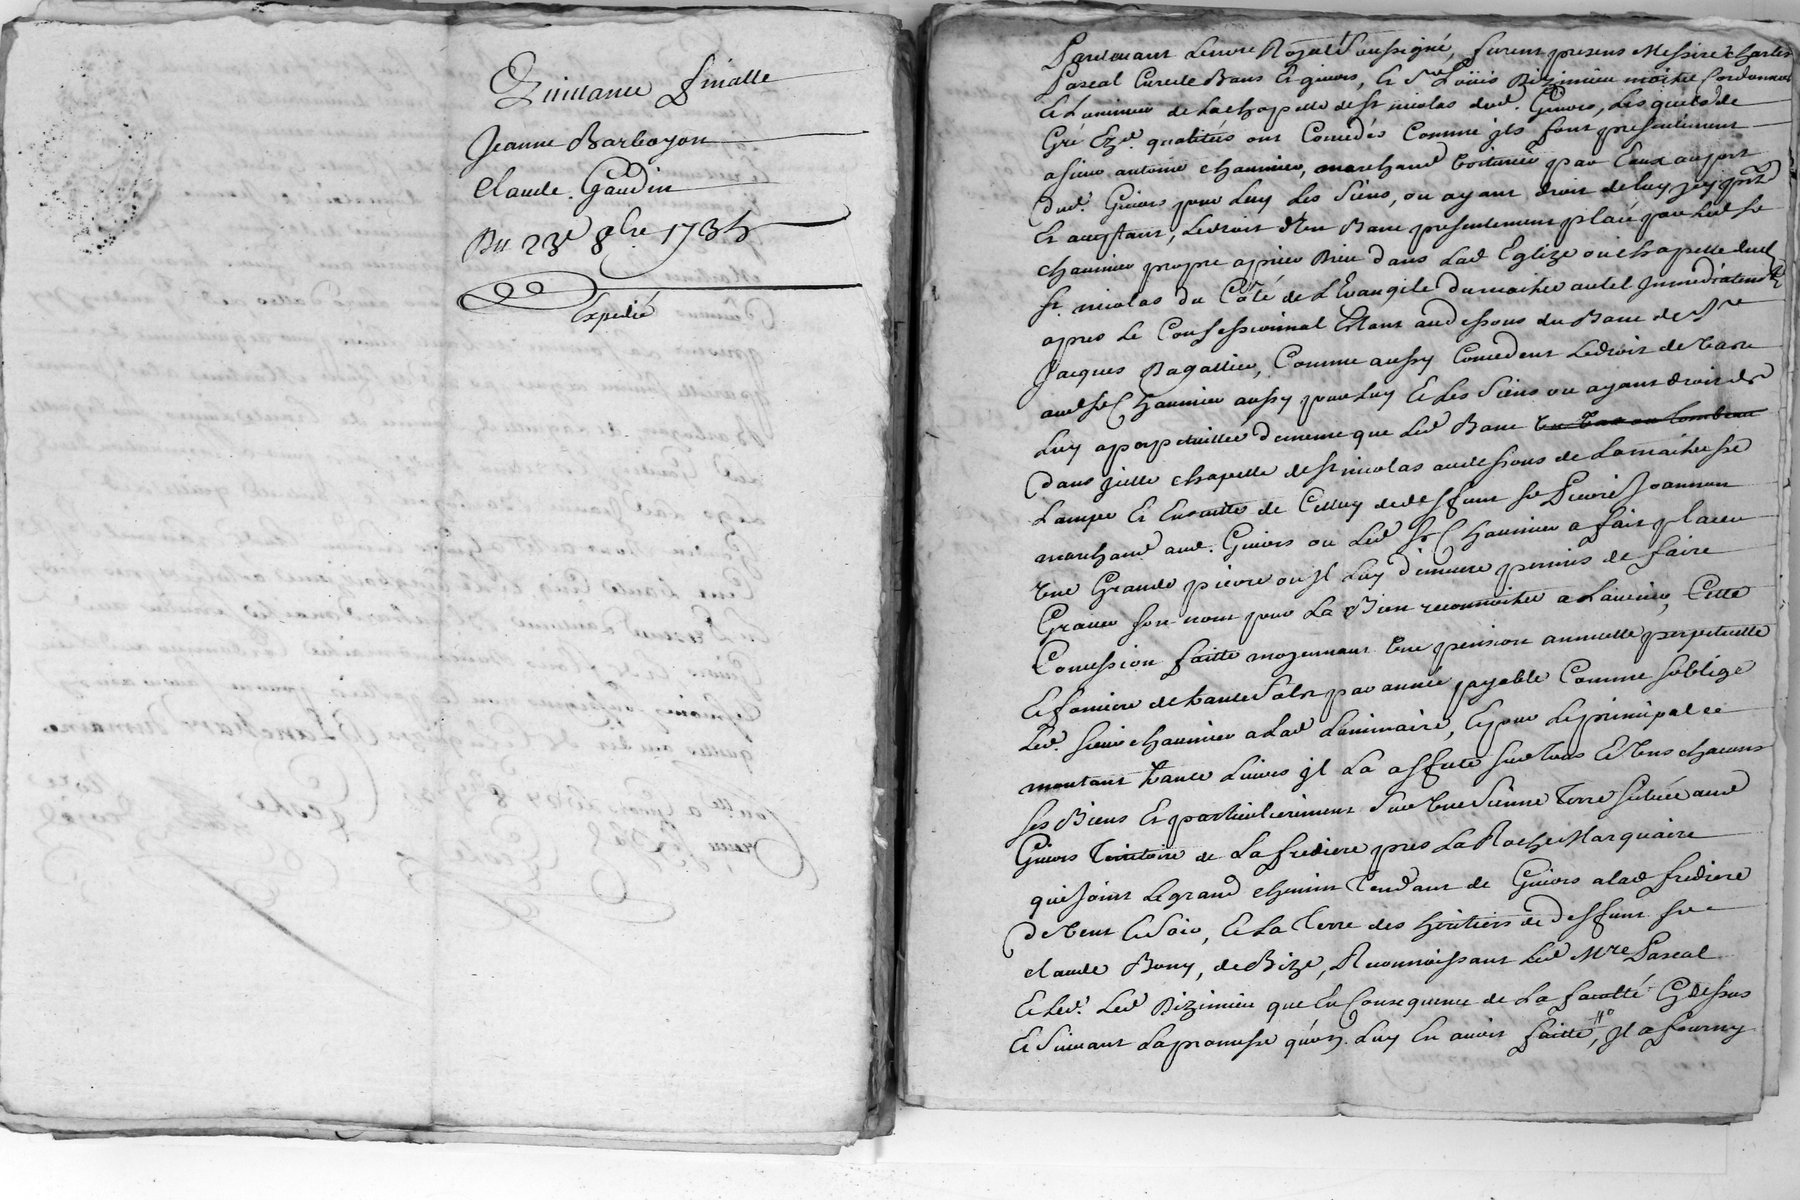 Quittance finalle
Jeanne Barboyon
Claude Gaudin
Du 23e 8bre 1735
Expedié
Pardevant Lenore Royal Soussigné, furent presens Messire Charles
Pascal Curé de Bans Et givors, Et Sr Loüis Bizimieu maitre Cordonnier
Et Luminier de La chapelle de St nicolas dud. Givors, Lesquels de
Gré Ezd. qualités ont Concedés Comme jls font presentement
a sieur antoine chaumier, marchand voiturier par Eaux au port
dud. Givors pour Luy Les Siens, ou ayant droit de luy jcy pnt
Et acceptant, Le droit d'Un Banc presentement placé par Led Sr
chaumier propre a prier Dieu dans Lad Eglize ou chapelle dud
St. nicolas du Côté de L'Evangile du maitre autel Jmmediatemt
apres Le Confessionnal Estant au dessous du Banc de Sr
Jacques Bagallier, Comme aussy Concedent Ledroit de Vase
aud Sr Chaumier aussy pour Luy Et Les Siens ou ayant droit de
Luy a perpetuitté de meme que Led Banc Un Vas ou tombeau
dans jcelle chapelle de St nicolas au dessous de La maitresse
Lampe Et Ensuitte de Celluy de deffunt Sr Pierre Joannon
marchand aud. Givors ou Led Sr Chaumier a fait placer
Une Grande pierre ou jl Luy demeure permis de faire
Graver son nom pour La Bien reconnoitre a Lavenir, Cette
Concession faitte moyennant Une pension annuelle perpetuelle
Et fonciere de trante Sols par année payable Comme soblige
Led. sieur chaumier a Lad Luminaire, Et pour Le principal ce
montant trante Livres jl La asseute sur tous Et Uns chacuns
ses Biens Et particulierement Sur Une Sienne Terre Scituée aud
Givors Territoire de La frediere pres La Roche Marquaire
qui Joint Le grand chemin Tendant de Givors a lad frediere
de Vent Et Soir, Et La Terre des heritiers de deffunt sr
claude Bony, de Bize, Reconnoissant Led Mre Pascal
Et Led. Led Bizimieu que En Consequence de La faculté Cydessus
Et Suivant La promesse qu'on Luy En avoit faitte, jl a fourny